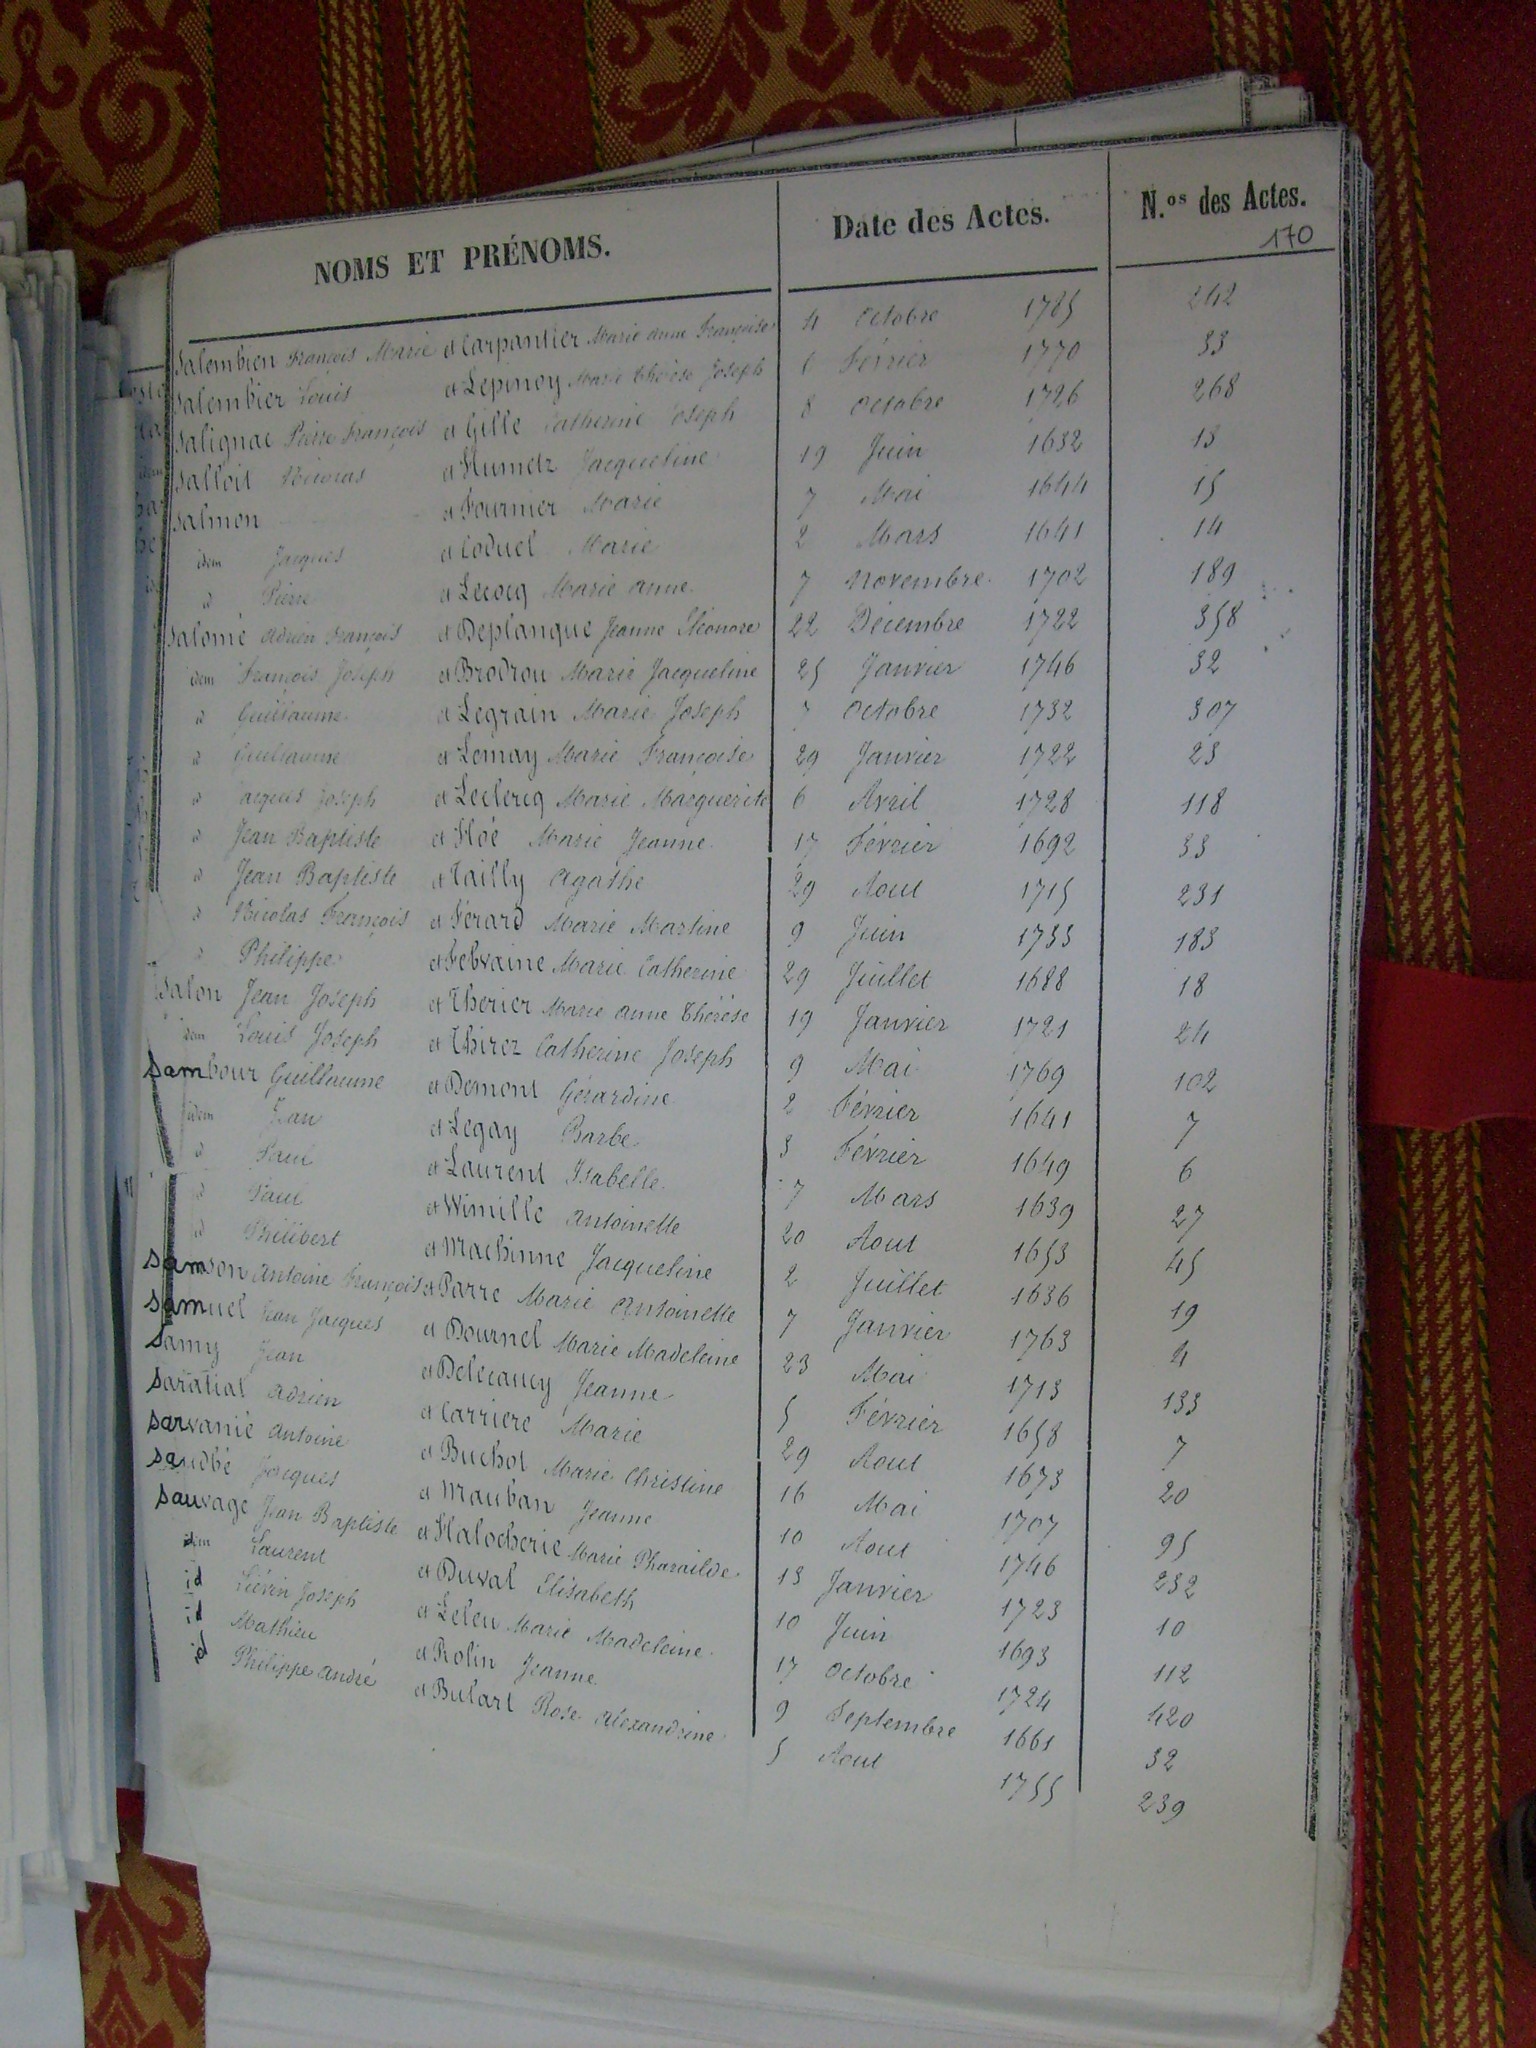 NOMS ET PRÉNOMS. Date des Actes. N.os des Actes.
170
Salembien François Marie et Carpantier Marie Anne Françoise 4 Octobre 1785 242
Salembier Louis et Lepinoy Marie Thérèse Joseph 6 Février 1770 33
Salignac Pierre François et Gille Catherine Joseph 8 Octobre 1726 268
Salloit Nicolas et Humetz Jacqueline 19 Juin 1632 13
Salmon et Fournier Marie 7 Mai 1644 15
idem Jacques et Coduel Marie 2 Mars 1641 14
id Pierre et Lecocq Marie Anne 7 Novembre 1702 189
Salomé Adrien François et Deplanque Jeanne Eléonore 22 Décembre 1722 358
idem François Joseph et Brodrou Marie Jacqueline 25 Janvier 1746 32
id Guillaume et Legrain Marie Joseph 7 Octobre 1732 307
id Guillaume et Lemay Marie Françoise 29 Janvier 1722 23
id Jacques Joseph et Leclercq Marie Marguerite 6 Avril 1728 118
id Jean Baptiste et Floé Marie Jeanne 17 Février 1692 33
id Jean Baptiste et Tailly Agathe 29 Aout 1715 231
id Nicolas François et Férard Marie Martine 9 Juin 1733 183
id Philippe et Febvaine Marie Catherine 29 Juillet 1688 18
Salon Jean Joseph et Therier Marie Anne Thérèse 19 Janvier 1721 24
idem Louis Joseph et Thirez Catherine Joseph 9 Mai 1769 102
Sambour Guillaume et Demont Gérardine 2 Février 1641 7
idem Jean et Legay Barbe 3 Février 1649 6
id Paul et Laurent Isabelle 7 Mars 1639 27
id Paul et Wimille Antoinette 20 Aout 1653 45
id Philibert et Machinne Jacqueline 2 Juillet 1636 19
Samson Antoine François et Parre Marie Antoinette 7 Janvier 1763 4
Samuel Jean Jacques et Dournel Marie Madeleine 23 Mai 1713 133
Samy Jean et Delecaucy Jeanne 5 Février 1658 7
Saratial Adrien et Carriere Marie 29 Aout 1673 20
Sarvanié Antoine et Buchot Marie Christine 16 Mai 1707 95
Saudbé Jacques et Mauban Jeanne 10 Aout 1746 232
Sauvage Jean Baptiste et Halocherie Marie Pharailde 13 Janvier 1723 10
idem Laurent et Duval Elisabeth 10 Juin 1693 112
id Liévin Joseph et Leleu Marie Madeleine 17 Octobre 1724 420
id Mathieu et Rolin Jeanne 9 Septembre 1661 32
id Philippe André et Bulart Rose Alexandrine 5 Aout 1755 239